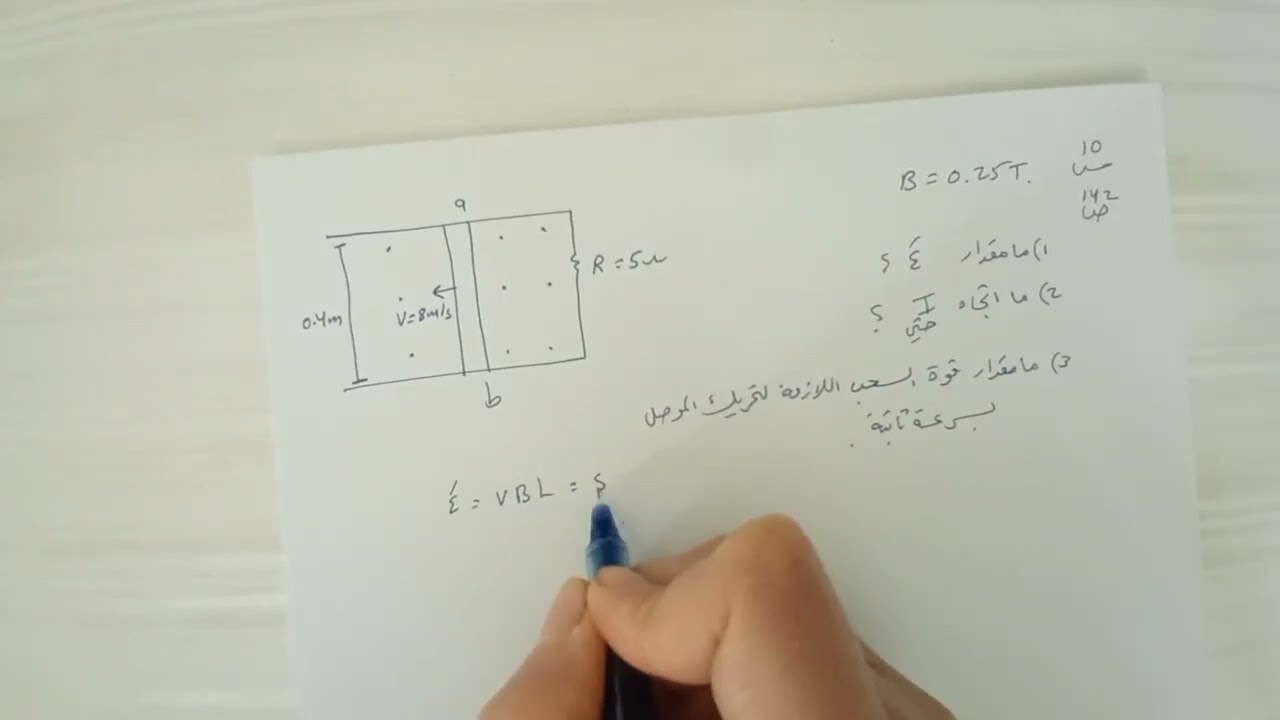 10
س
B = 0.25T.
142
ص
1) ما مقدار ξ́ ؟
2) ما اتجاه I حثي ؟
3) ما مقدار قوة السحب اللازمة لتحريك الموصل
بسرعة ثابتة.
a
0.4m
V=8m/s
R = 5Ω
b
ξ́ = VBL = 8